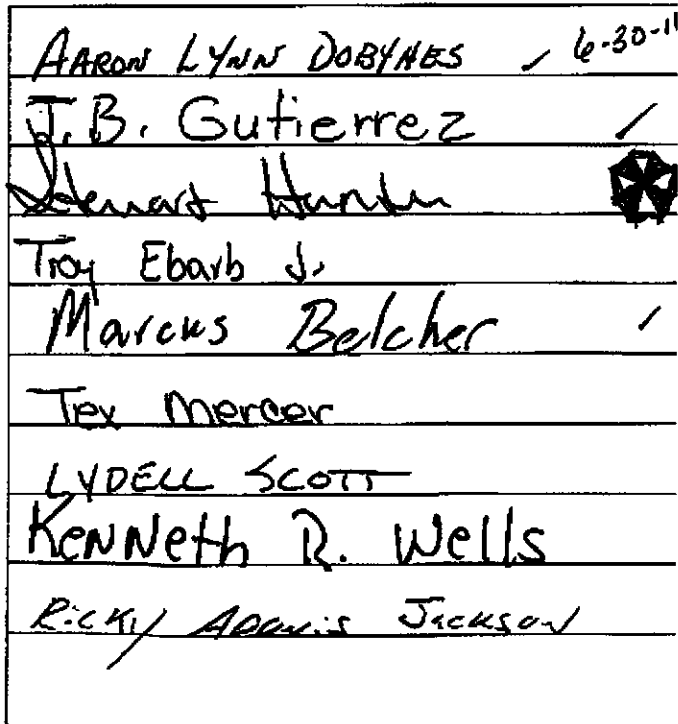 AARON LYNN DOBYNES ✓ 6-30-11
J.B. Gutierrez ✓
Stewart
Troy Ebarb J.
Marcus Belcher ✓
Tex Mercer
LYDELL SCOTT
KENNeth R. Wells
RICKY ADONIS JACKSON